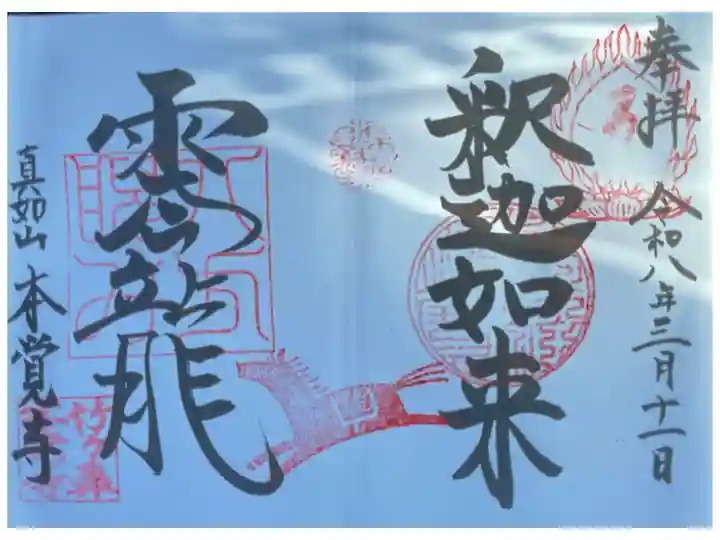 奉拝 令和八年三月十一日
釈迦如来
雲龍
真如山 本覺寺